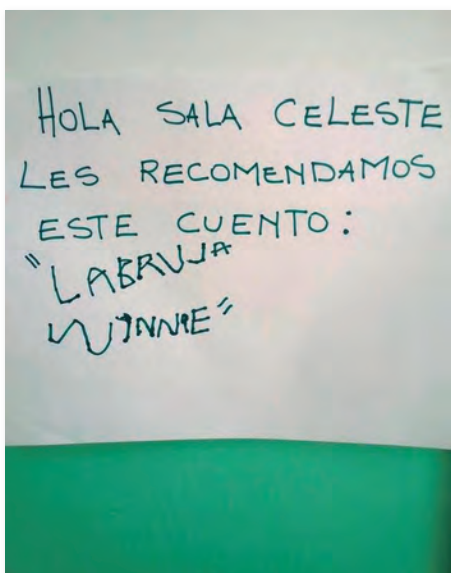 HOLA SALA CELESTE
LES RECOMENDAMOS
ESTE CUENTO:
"LABRUJA
WINNIE"